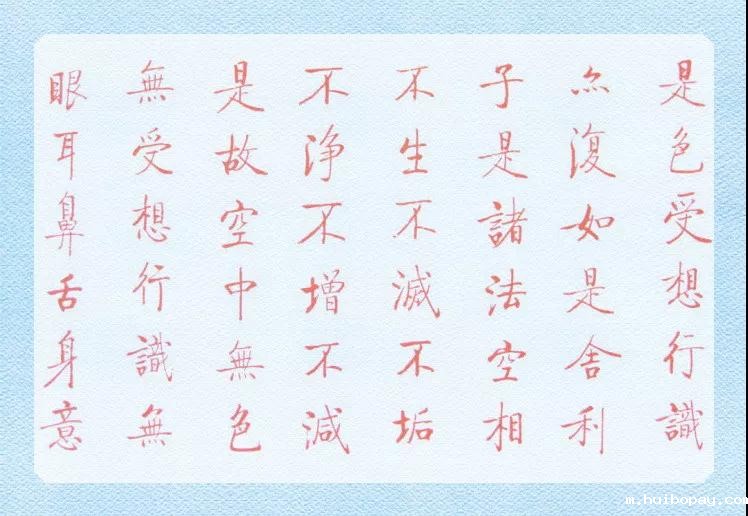 是色受想行識
亦復如是舍利
子是諸法空相
不生不滅不垢
不淨不增不減
是故空中無色
無受想行識無
眼耳鼻舌身意
m.huibopay.com